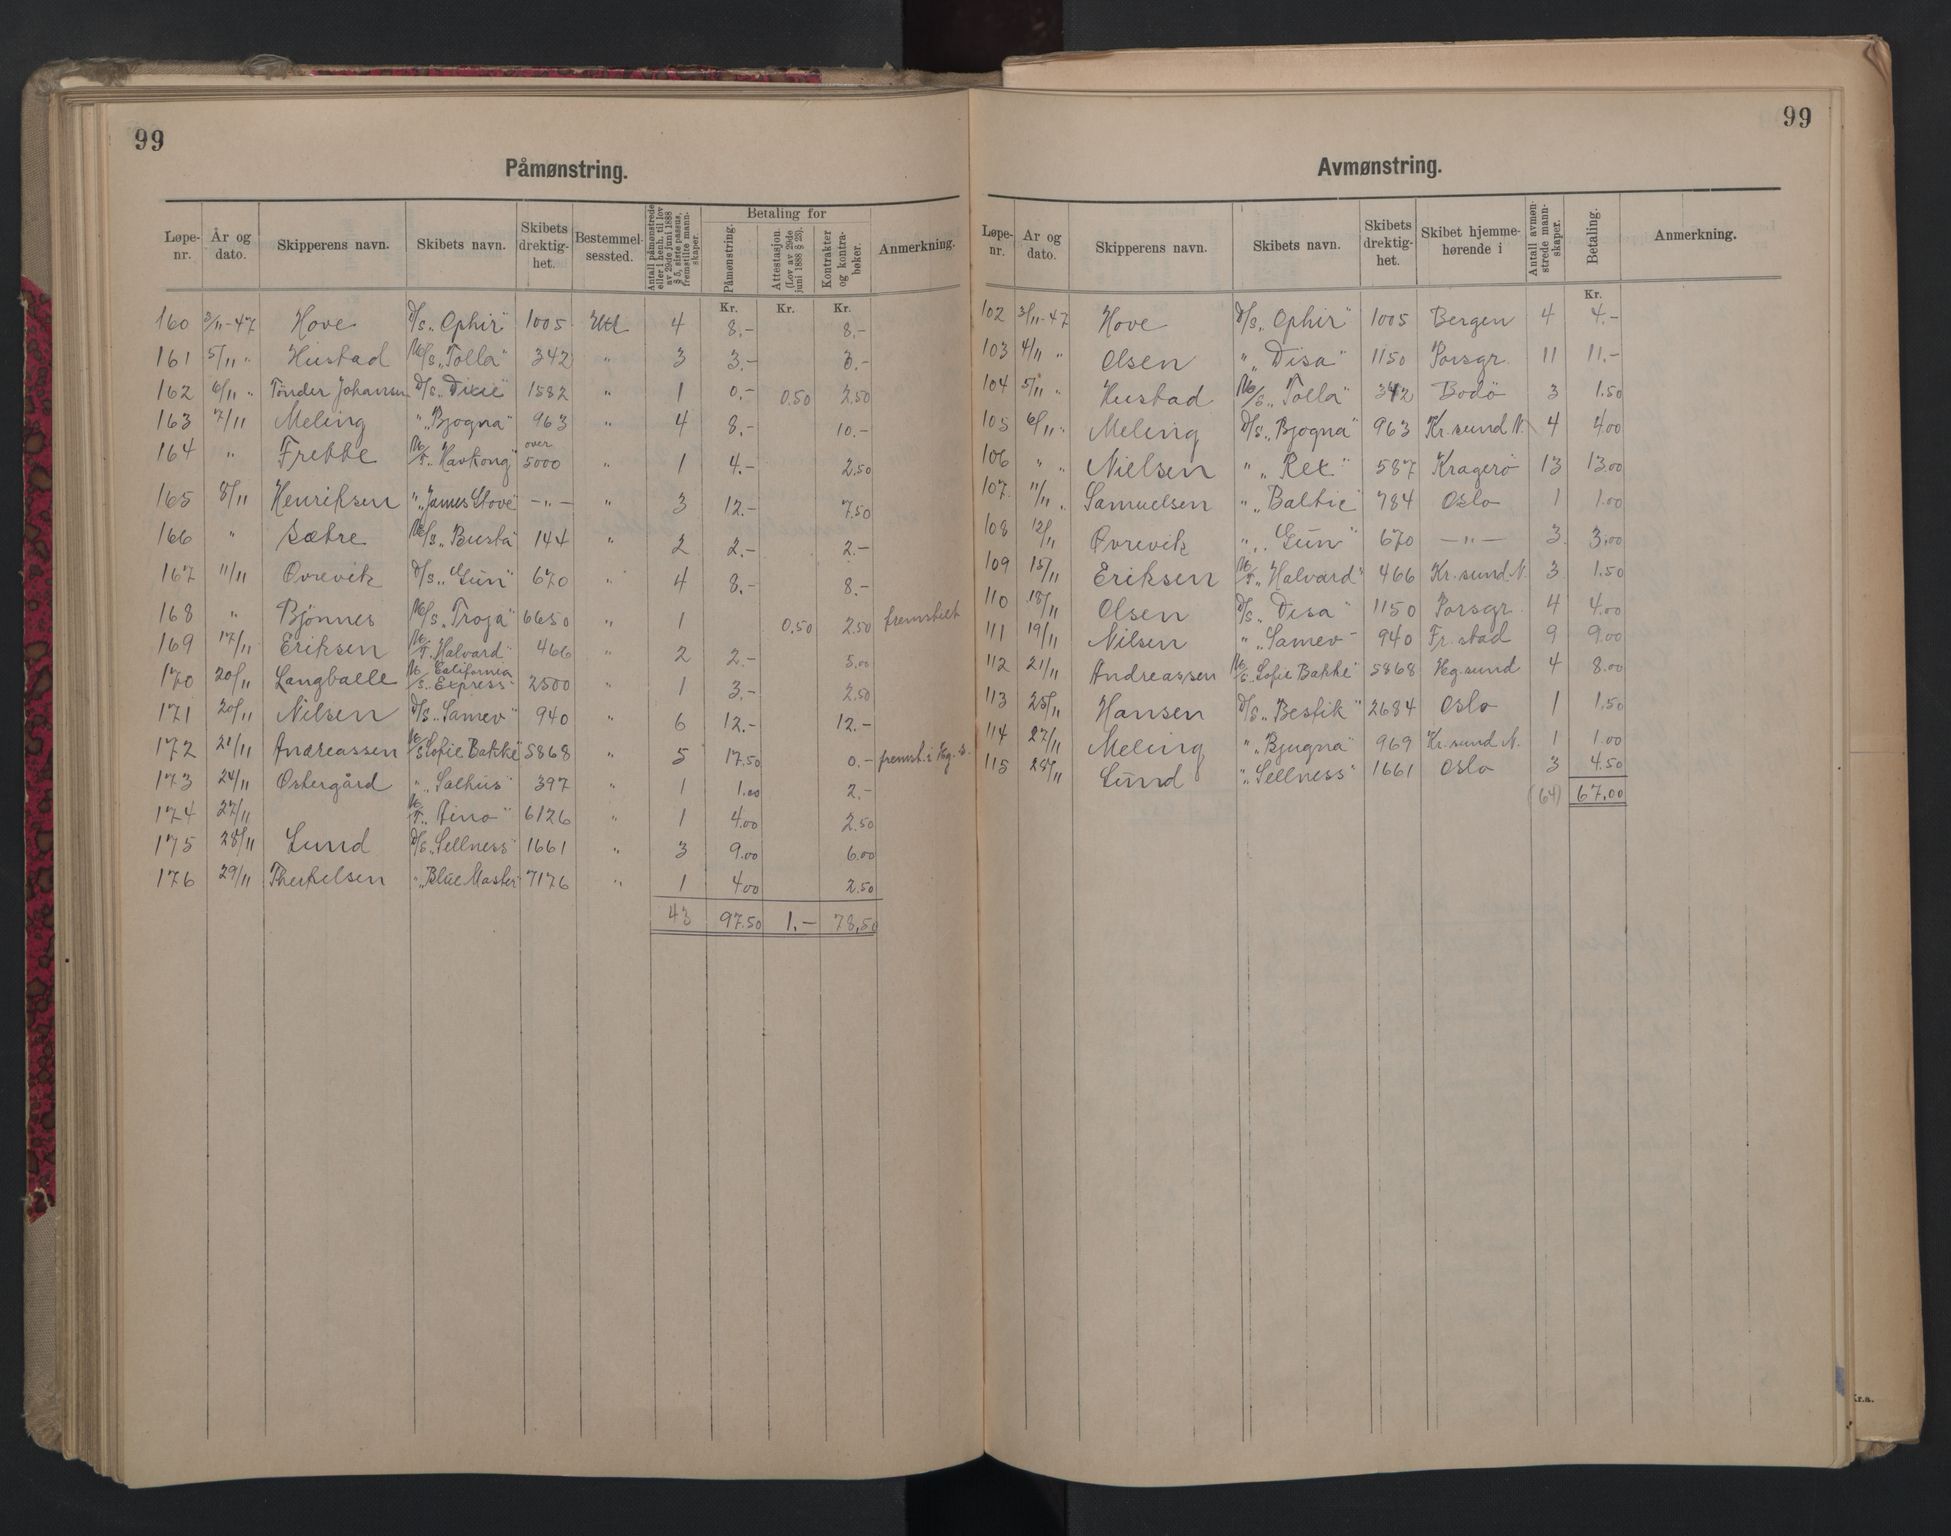 99
Påmønstring.
Løpe-nr. | År og dato. | Skipperens navn. | Skibets navn. | Skibets drektig-het. | Bestemmel-sessted. | Antall påmønstrede eller i henh. til lov av 29de juni 1888 § 5, siste passus, fremstilte mann-skaper. | Betaling for | Påmønstring. | Attestasjon. (Lov av 29de juni 1888 § 23). | Kontrakter og kontra-bøker. | Anmerkning.
Kr. | Kr. | Kr.
160 | 3/11-47 | Hove | D/S „Ophir" | 1005 | Utl | 4 | 8.- | | 8.-
161 | 5/11 " | Hustad | M/S „Tolla" | 342 | " | 3 | 3.- | | 3.-
162 | 6/11 " | Tönder Johansen | D/S „Dixie" | 1582 | " | 1 | 0.- | 0.50 | 2.50
163 | 7/11 | Meling | " „Bjogna" | 963 | " | 4 | 8.- | | 10.-
164 | " | Frekke | M/T „Havkong" | over 5000 | " | 1 | 4.- | | 2.50
165 | 8/11 | Henriksen | " „James Stove" | -"- | " | 3 | 12.- | | 7.50
166 | " | Sætre | M/S „Busta" | 144 | " | 2 | 2.- | | 2.-
167 | 11/11 | Ovrevik | D/S „Gun" | 670 | " | 4 | 8.- | | 8.-
168 | " | Bjönnes | M/S „Troja" | 6650 | " | 1 | | 0.50 | 2.50 | fremstilt
169 | 17/11 | Eriksen | M/T „Halvard" | 466 | " | 2 | 2.- | | 5.00
170 | 20/11 | Langballe | M/S „California Express" | 2500 | " | 1 | 3.- | | 2.50
171 | 20/11 | Nilsen | D/S „Samev" | 940 | " | 6 | 12.- | | 12.-
172 | 21/11 | Andreassen | M/S „Sofie Bakke" | 5868 | " | 5 | 17.50 | | 0.- | fremst. i Hg. s.
173 | 24/11 | Ostergård | " „Salhus" | 397 | " | 1 | 1.00 | | 2.-
174 | 27/11 | | M/T „Aino" | 6126 | " | 1 | 4.00 | | 2.50
175 | 28/11 | Lund | D/S „Sellness" | 1661 | " | 3 | 9.00 | | 6.00
176 | 29/11 | Therkelsen | " „Blue Master" | 7176 | " | 1 | 4.00 | | 2.50
43 | 97.50 | 1.- | 78,50
99
Avmønstring.
Løpe-nr. | År og dato. | Skipperens navn. | Skibets navn. | Skibets drektig-het. | Skibet hjemme-hørende i | Antall avmøn-strede mann-skaper. | Betaling. | Anmerkning.
Kr.
102 | 3/11-47 | Hove | D/S „Ophir" | 1005 | Bergen | 4 | 4.-
103 | 4/11 " | Olsen | " „Disa" | 1150 | Porsgr. | 11 | 11.-
104 | 5/11 " | Hustad | M/S „Tolla" | 342 | Bodö | 3 | 1.50
105 | 6/11 " | Meling | D/S „Bjogna" | 963 | Kr.sund N. | 4 | 4.00
106 | " " | Nielsen | " „Rex" | 587 | Kragerö | 13 | 13.00
107. | 11/11 " | Samuelsen | " „Baltic" | 784 | Oslo | 1 | 1.00
108 | 12/11 | Ovrevik | " „Gun" | 670 | -"- | 3 | 3.00
109 | 15/11 | Eriksen | M/T „Halvard" | 466 | Kr.sund N. | 3 | 1.50
110 | 18/11 | Olsen | D/S „Disa" | 1150 | Porsgr. | 4 | 4.00
111 | 19/11 | Nilsen | " „Samev" | 940 | Fr.stad | 9 | 9.00
112 | 21/11 | Andreassen | M/S „Sofie Bakke" | 5868 | Hg.sund | 4 | 8.00
113 | 25/11 | Hansen | D/S „Bestik" | 2684 | Oslo | 1 | 1.50
114 | 27/11 | Meling | " „Bjugna" | 969 | Kr.sund N. | 1 | 1.00
115 | 28/11 | Lund | " „Sellness" | 1661 | Oslo | 3 | 4.50
(64) | 67.00
Kr.a.